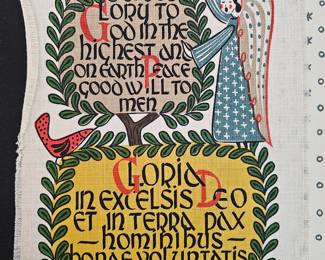 Glory to
God in the
highest and
on earth Peace
good will to
men
Gloria
in excelsis Deo
et in terra pax
hominibus
bonae voluntatis